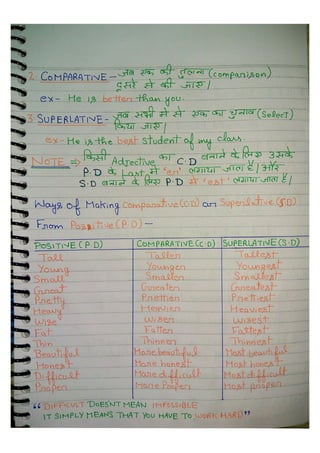 2. COMPARATIVE - जब एक की तुलना (comparison)
दूसरे से की जाए।
ex- He is better than you.
3. SUPERLATIVE - जब सभी में से एक का चुनाव (select)
किया जाए।
ex- He is the best student of my class.
NOTE ⇒ किसी Adjective का C.D बनाने के लिए उसके
P.D के Last में "er" लगाया जाता है। और
S.D बनाने के लिए P.D में "est" लगाया जाता है।
Ways of Making Comparative (C.D) or Superlative (S.D)
From Positive (P.D) -
POSITIVE (P.D) COMPARATIVE (C.D) SUPERLATIVE (S.D)
Tall Taller Tallest
Young Younger Youngest
Small Smaller Smallest
Great Greater Greatest
Pretty Prettier Prettiest
Heavy Heavier Heaviest
Wise Wiser Wisest
Fat Fatter Fattest
Thin Thinner Thinnest
Beautiful More beautiful Most beautiful
Honest More honest Most honest
Difficult More difficult Most difficult
Proper More Proper Most proper
"DIFFICULT DOESN'T MEAN IMPOSSIBLE
IT SIMPLY MEANS THAT YOU HAVE TO WORK HARD"